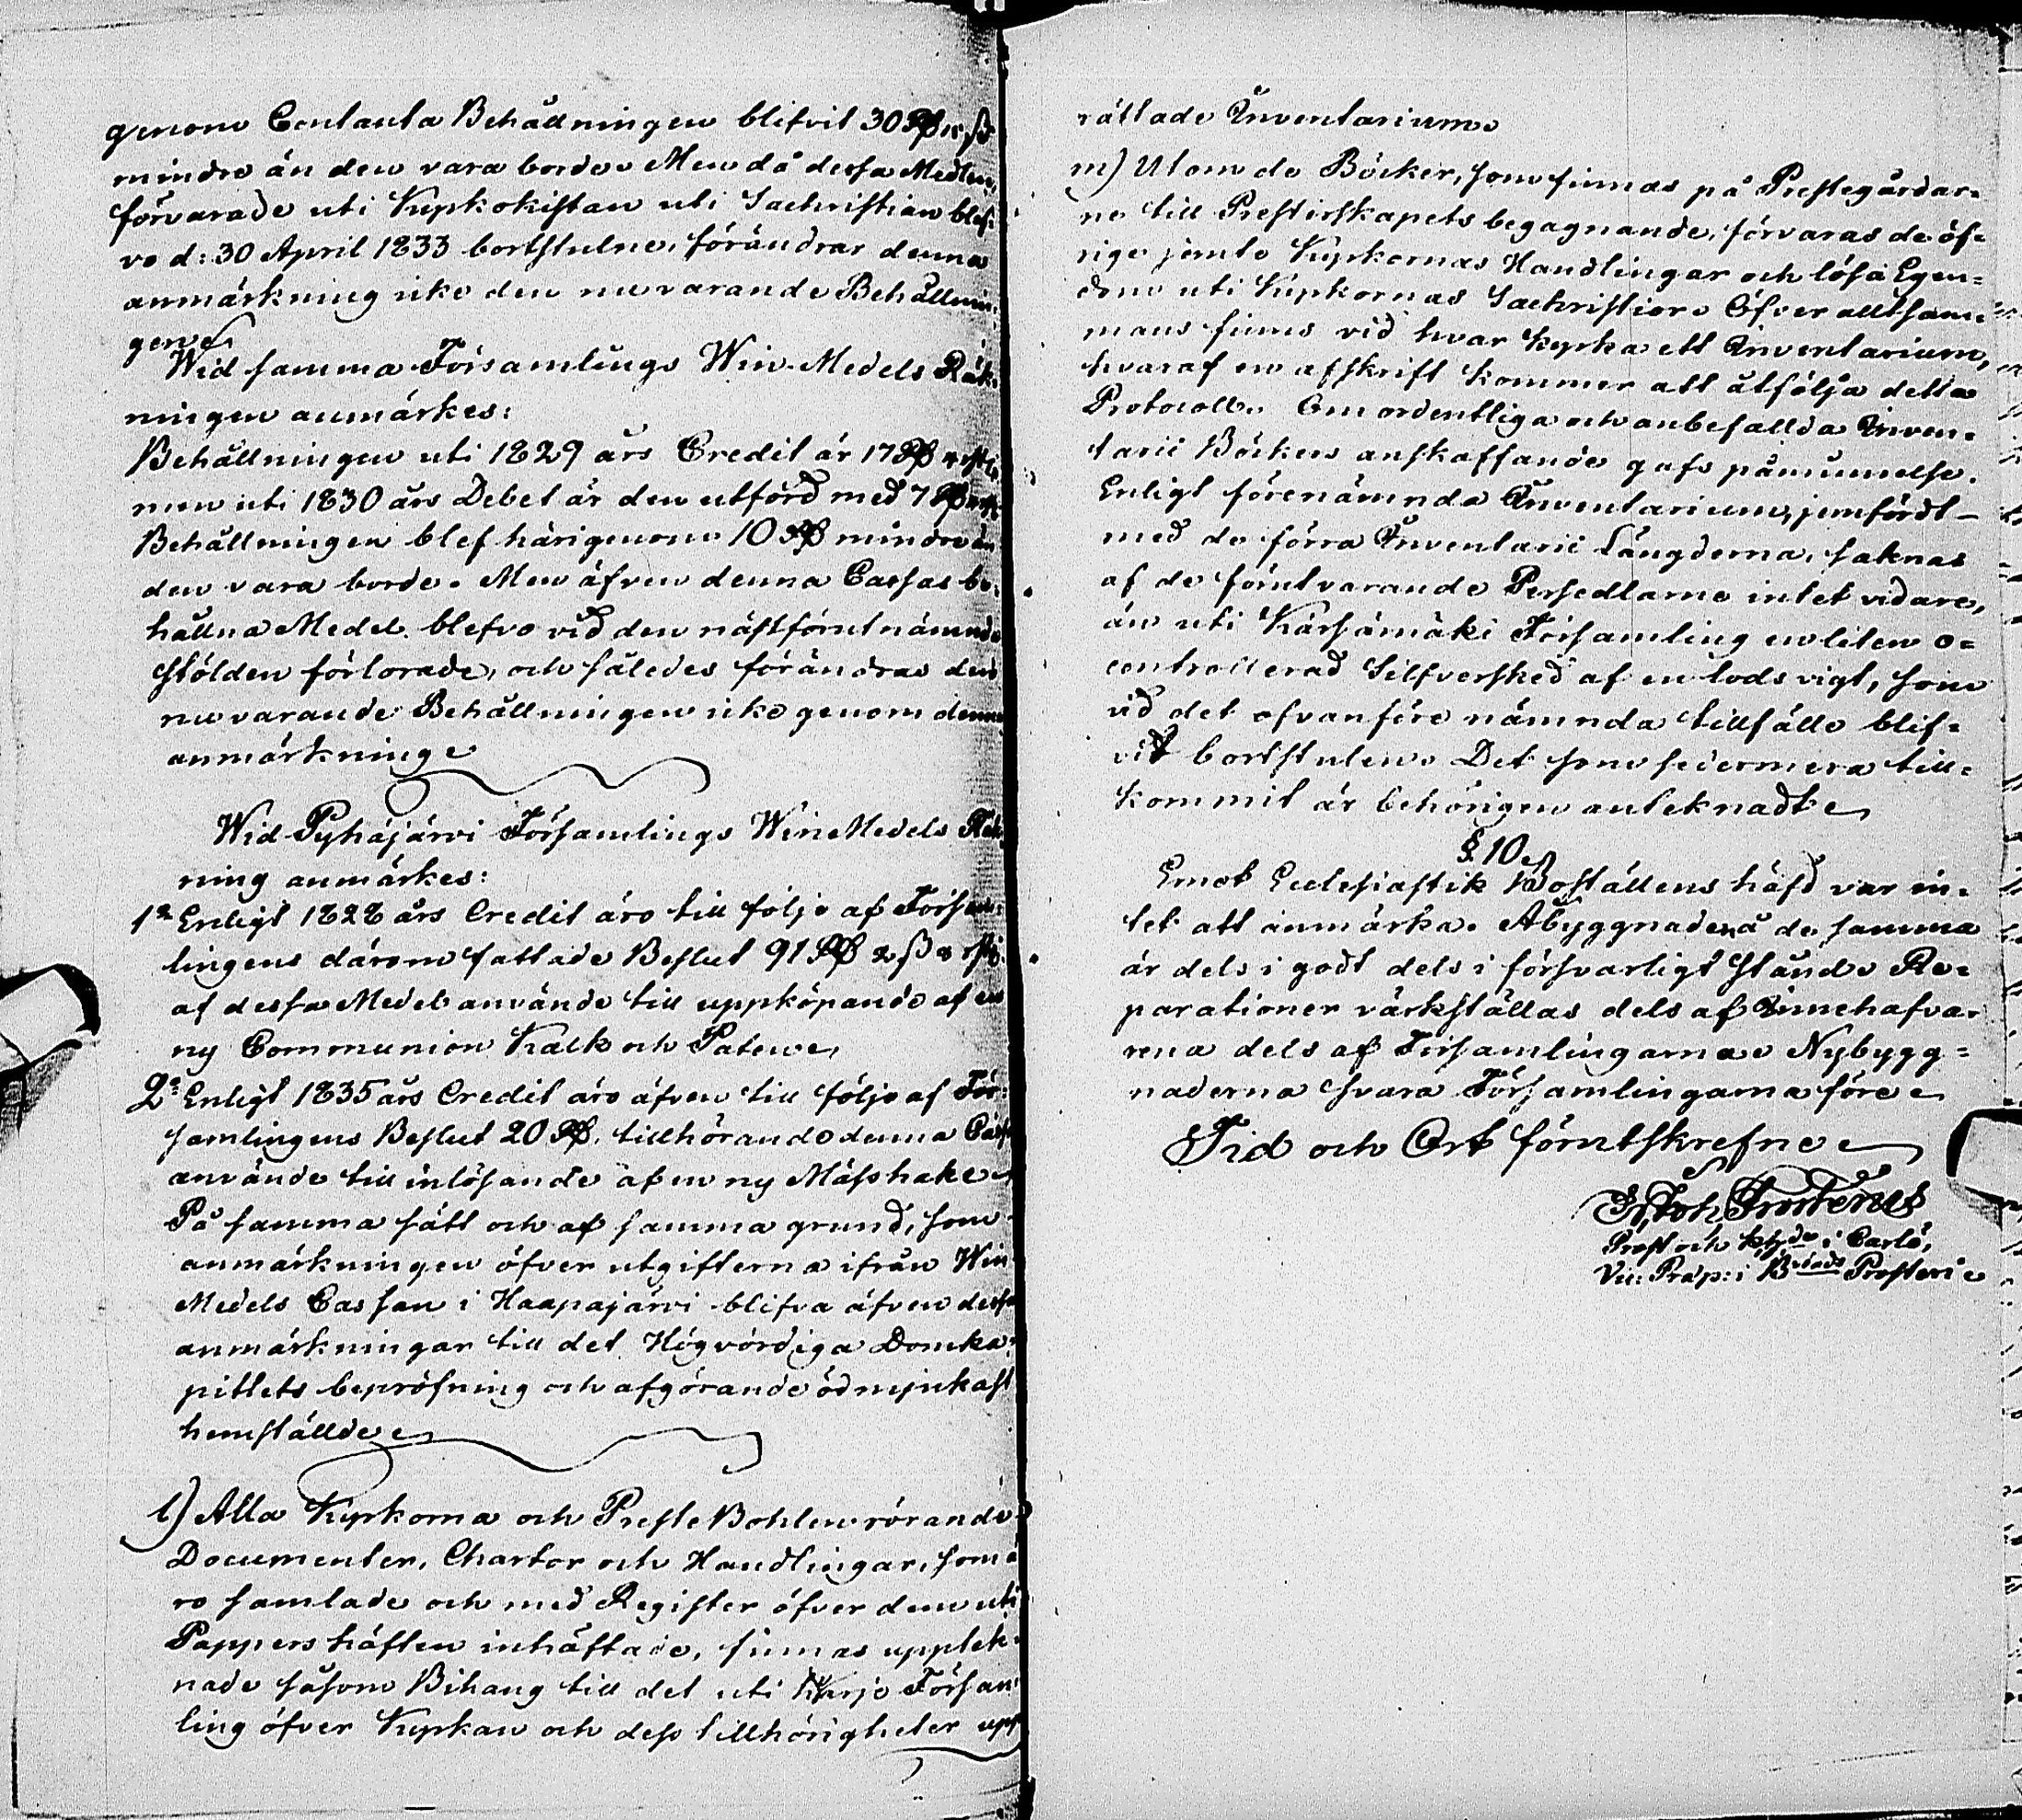 genom Contanta Behållningen blifvit 30
mindre än den vara borde. Men då dessa Medlen,
förvarade uti Kyrkokistan uti Sachristian blef-
vo d: 30 April 1833 bortstulne, förändrar denna
anmärkning icke den nu varande Behållnin-
gen.
Wid samma Församlings Win-Medels Räk-
ningen anmärkes:
Behållningen uti 1829 års Credit är 17
men uti 1830 års Debet är den utförd med 7
Behållningen blef härigenom 10 mindre än
den vara borde. Men äfven denna Cassas be-
hållna Medel blefvo vid den nästförutnämnde
stölden förlorade, och således förändras den
nuvarande Behållningen icke genom denna
anmärkning.
Wid Pyhäjärvi Församlings Win Medels Räk-
ning anmärkes:
1:o Enligt 1828 års Credit äro till följe af Försam-
lingens därom fattade Beslut 91
af dessa Medel använde till uppköpande af en
ny Communion Kalk och Paten.
2:o Enligt 1835 års Credit äro äfven till följe af För-
samlingens Beslut 20 tillhörande denna Cassa
använde till inlösande af en ny Mässhake.
På samma sätt och af samma grund, som
anmärkningen öfver utgifterna ifrån Win
Medels Cassan i Haapajärvi blifva äfven dessa
anmärkningar till det Högvördiga Domka-
pitlets bepröfning och afgörande ödmjukast
hemställde.
l) Alla Kyrkorna och Preste Bohlen rörande
Documenter, Chartor och Handlingar, som ä
ro samlade och med Register öfver dem uti
Pappers häften inhäftade, finnas upptek-
nade såsom Bihang till det uti hvarje Försam-
ling öfver Kyrkan och dess tillhörigheter upp
rättade Inventarium.
m) Utom de Böcker, som finnas på Prestegårdar-
ne till Presterskapets begagnande, förvaras de öf-
rige jemte Kyrkornas Handlingar och lösa Egen-
dom uti Kyrkornas Sachristior. Öfver alltsam-
mans finns vid hvar kyrka ett Inventarium,
hvaraf en afskrift kommer att åtfölja detta
Protocoll. Om ordentliga och anbefallda Inven-
tarii Böckers anskaffande gafs påminnelse.
Enligt förenämnda Inventarium, jemfördt
med de förra Inventarii Längderna, saknas
af de förutvarande Persedlarne intet vidare,
än uti Kärsämäki Församling en liten o-
controllerad Silfversked af en lods vigt, som
vid det ofvanföre nämnda tillfälle blif-
vit bortstulen. Det som sedermera till-
kommit är behörigen anteknadt.
§. 10.
Emot Ecclesiastik Boställens häfd var in-
tet att anmärka. Åbyggnaden å de samma
är dels i godt dels i försvarligt stånd. Re-
parationer värkställas dels af Innehafva-
rena dels af Församlingarna. Nybygg-
naderna svara Församlingarna före.
Tid och Ort förutskrefne.
Joh Frosterus
Prost och Khde i Carlö,
Vic: Præp: i Prosteri.